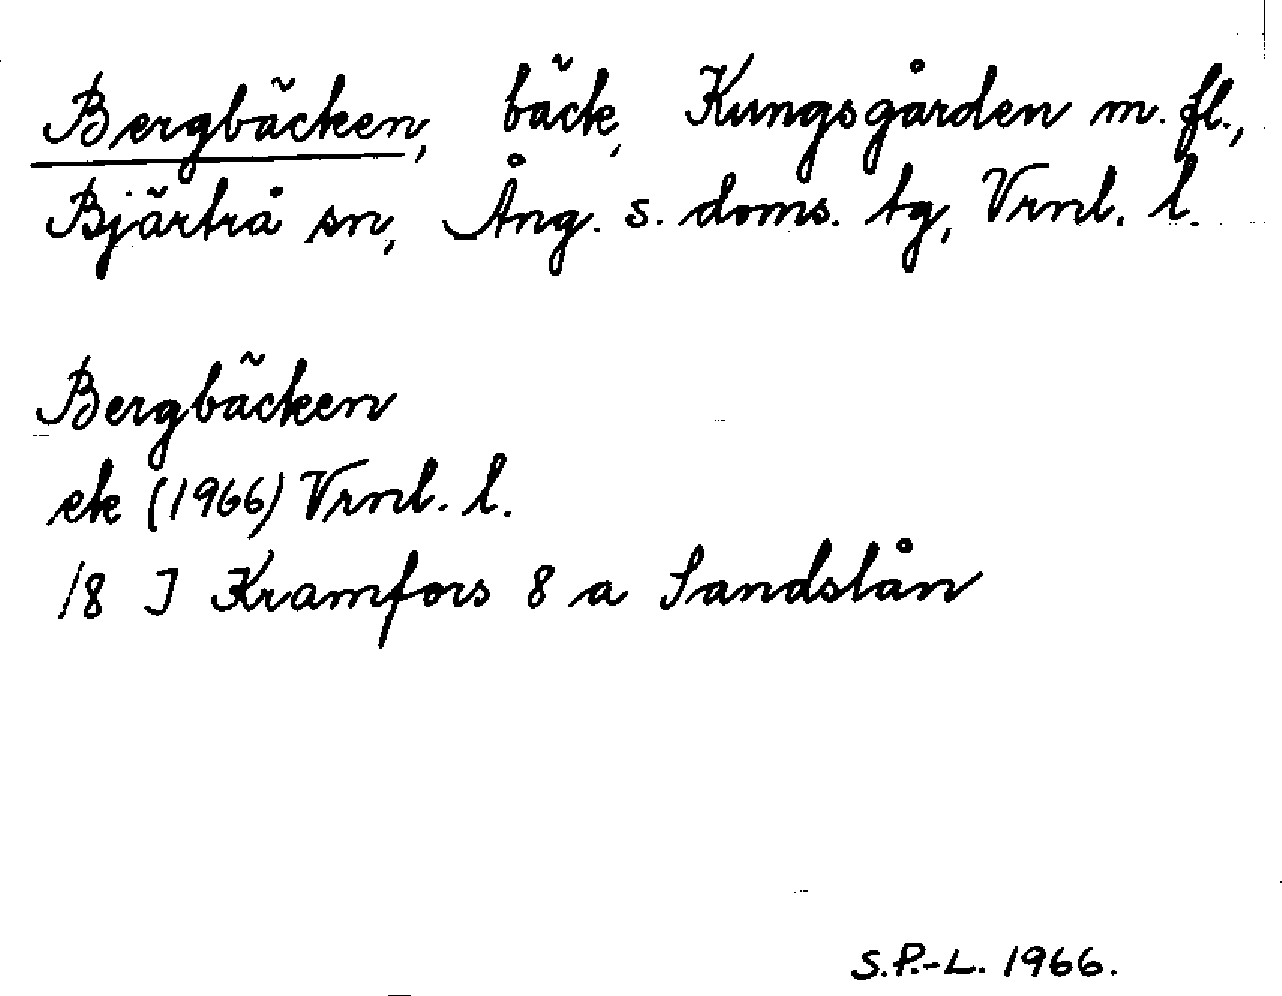 Bergbäcken, bäck, Kungsgården m. fl.,
Bjärtrå sn, Ång. s. doms. tg, Vrnl. l.
Bergbäcken
ek (1966) Vrnl. l.
18 J Kramfors 8 a Sandslån
S.P.-L. 1966.